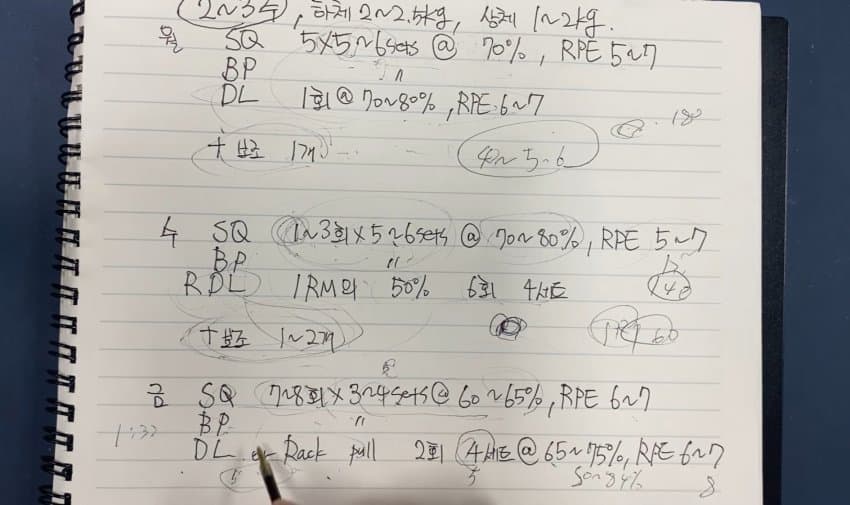 2~3주, 하체 2~2.5kg, 상체 1~2kg.
월 SQ 5x5~6sets @ 70%, RPE 5~7
BP "
DL 1회 @ 70~80%, RPE 6~7
180
+ 보조 1개
40~5~6
수 SQ 1~3회 x 5~6sets @ 70~80%, RPE 5~7
BP "
RDL 1RM의 50% 6회 4세트 140
+ 보조 1~2개 60
금 SQ 7~8회 x 3~4sets @ 60~65%, RPE 6~7
BP "
DL or Rack pull 2회 4세트 @ 65~75%, RPE 6~7
5 8